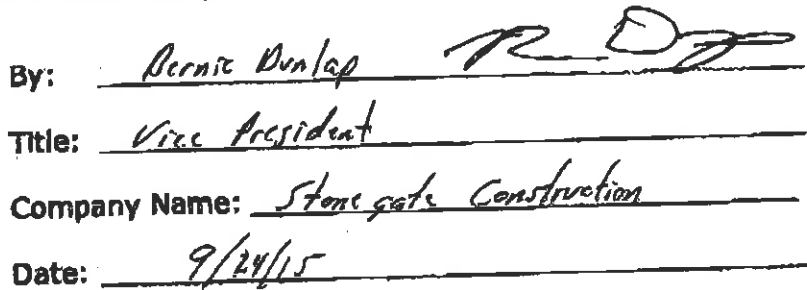 By: Bernie Dunlap
Title: Vice President
Company Name: Stonegate Construction
Date: 9/24/15